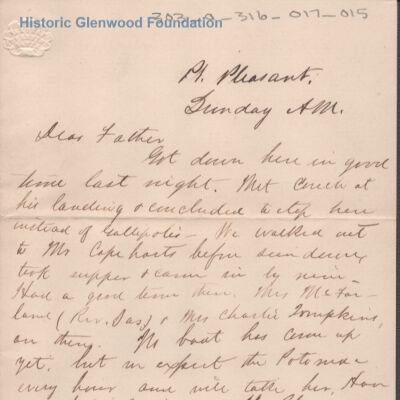 Historic Glenwood Foundation
303-0-316-017-015
Pt. Pleasant.
Sunday AM.
Dear Father
Got down here in good
time last night. Met Couch at
his landing & concluded to stop here
instead of Gallipolis - We walked out
to Mr Capeharts before sun down,
took supper & came in by nine -
Had a good time there. Mrs McFar-
land (Rev. Jas) & Mrs Charlie Tompkins
are there. No boat has come up
yet, but we expect the Potomac
every hour and will take her.